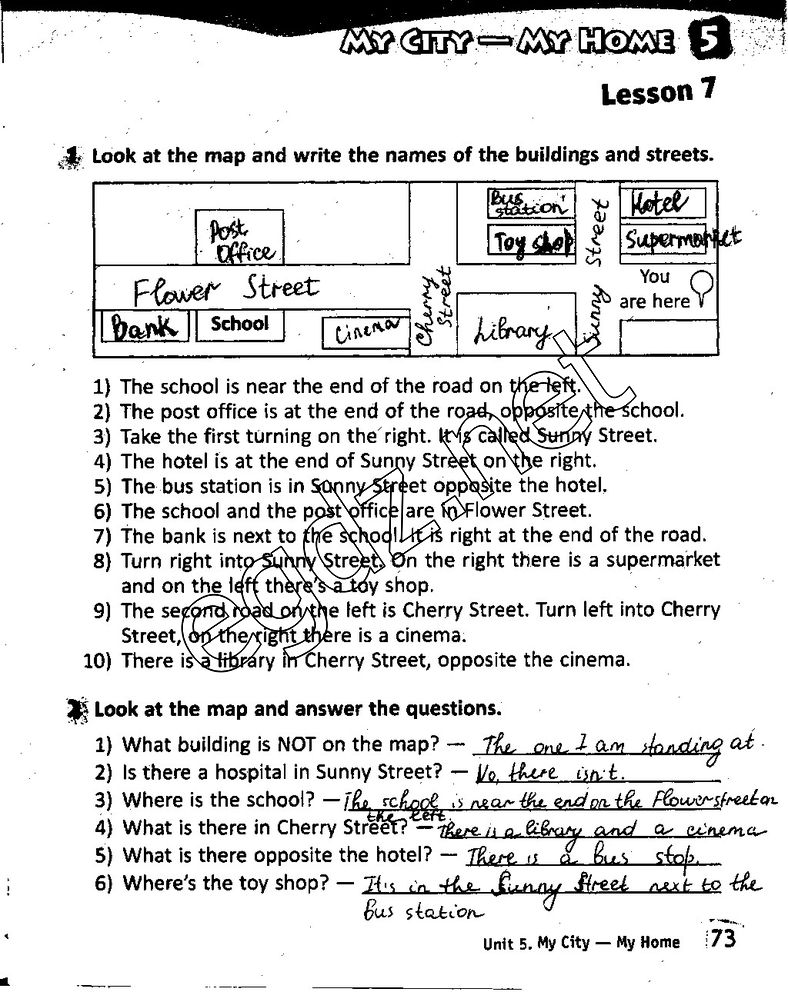 MY CITY — MY HOME 5
Lesson 7
1 Look at the map and write the names of the buildings and streets.
Bus station
Hotel
Post Office
Toy shop
Supermarket
Sunny Street
Cherry Street
Flower Street
You are here
Bank
School
Cinema
Library
1) The school is near the end of the road on the left.
2) The post office is at the end of the road, opposite the school.
3) Take the first turning on the right. It is called Sunny Street.
4) The hotel is at the end of Sunny Street on the right.
5) The bus station is in Sunny Street opposite the hotel.
6) The school and the post office are in Flower Street.
7) The bank is next to the school. It is right at the end of the road.
8) Turn right into Sunny Street. On the right there is a supermarket
and on the left there's a toy shop.
9) The second road on the left is Cherry Street. Turn left into Cherry
Street, on the right there is a cinema.
10) There is a library in Cherry Street, opposite the cinema.
egdz.net
2 Look at the map and answer the questions.
1) What building is NOT on the map? — The one I am standing at.
2) Is there a hospital in Sunny Street? — No, there isn't.
3) Where is the school? — The school is near the end on the Flower street on
the left.
4) What is there in Cherry Street? — There is a library and a cinema
5) What is there opposite the hotel? — There is a bus stop.
6) Where's the toy shop? — It is in the Sunny Street next to the
bus station
Unit 5. My City — My Home 73